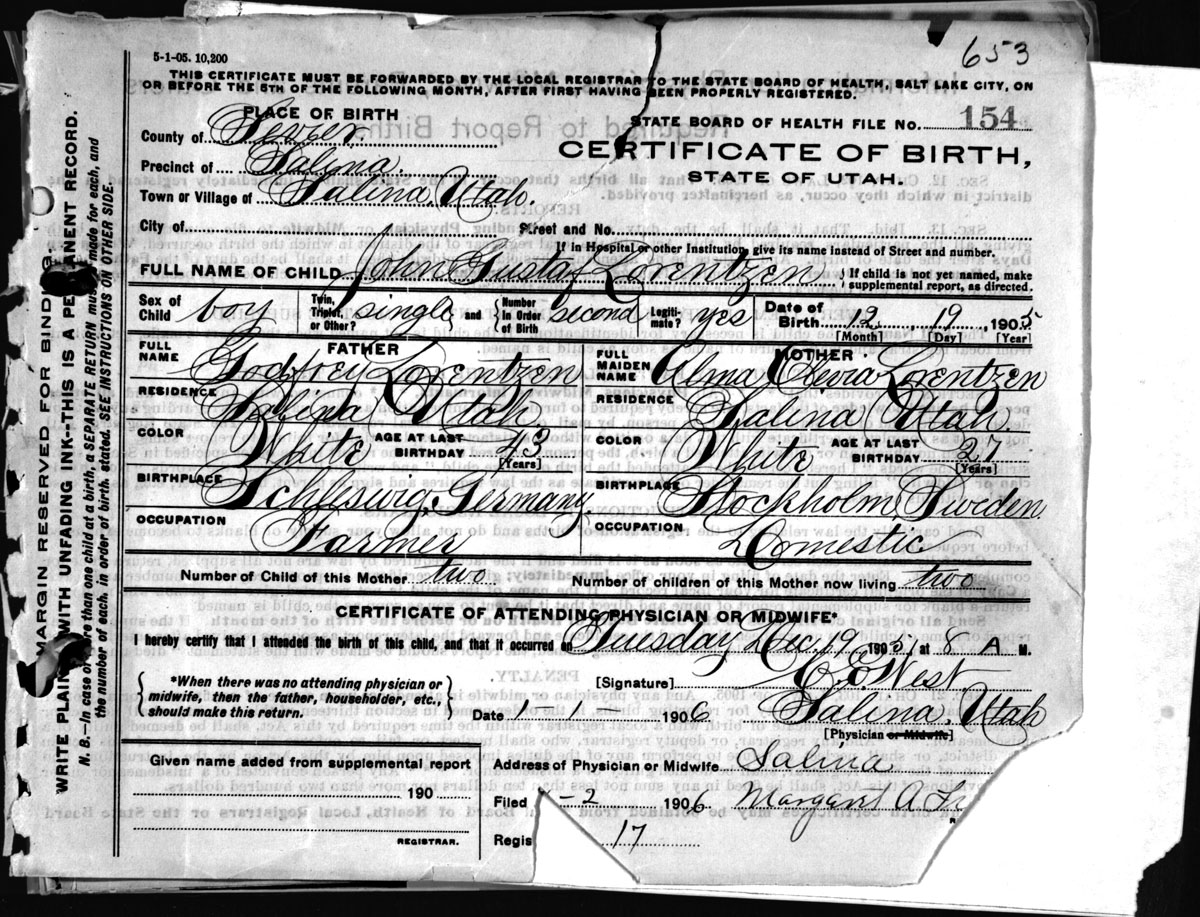 653
5-1-05. 10,200
THIS CERTIFICATE MUST BE FORWARDED BY THE LOCAL REGISTRAR TO THE STATE BOARD OF HEALTH, SALT LAKE CITY, ON
OR BEFORE THE 5TH OF THE FOLLOWING MONTH, AFTER FIRST HAVING BEEN PROPERLY REGISTERED.
PLACE OF BIRTH
STATE BOARD OF HEALTH FILE No. 154
County of Sevier
CERTIFICATE OF BIRTH,
Precinct of Salina
STATE OF UTAH.
Town or Village of Salina, Utah.
City of Street and No.
If in Hospital or other Institution, give its name instead of Street and number.
FULL NAME OF CHILD John Gustaf Lorentzen { If child is not yet named, make supplemental report, as directed.
Sex of Child boy Twin, Triplet, or Other? single and { Number in Order of Birth second Legiti-mate? yes Date of Birth 12 19, 1905
[Month] [Day] [Year]
FATHER
MOTHER
FULL NAME Godfrey Lorentzen
FULL MAIDEN NAME Alma Lorentzen
RESIDENCE Salina Utah.
RESIDENCE Salina Utah
COLOR White AGE AT LAST BIRTHDAY 43 [Years]
COLOR White AGE AT LAST BIRTHDAY 27 [Years]
BIRTHPLACE Schleswig, Germany.
BIRTHPLACE Stockholm, Sweden
OCCUPATION Farmer
OCCUPATION Domestic
Number of Child of this Mother two
Number of children of this Mother now living two
CERTIFICATE OF ATTENDING PHYSICIAN OR MIDWIFE*
I hereby certify that I attended the birth of this child, and that it occurred on Tuesday Dec. 19 1905, at 8 A M.
{ *When there was no attending physician or midwife, then the father, householder, etc., should make this return. }
[Signature] E. E. West
Date 1 - 1 - 1906 Salina, Utah
[Physician or Midwife]
Given name added from supplemental report
190
REGISTRAR.
Address of Physician or Midwife Salina
Filed -2 1906 Margaret A
Regis 17
MARGIN RESERVED FOR BINDING
WRITE PLAINLY WITH UNFADING INK--THIS IS A PERMANENT RECORD.
N. B.--In case of more than one child at a birth, a SEPARATE RETURN must be made for each, and
the number of each, in order of birth, stated. SEE INSTRUCTIONS ON OTHER SIDE.